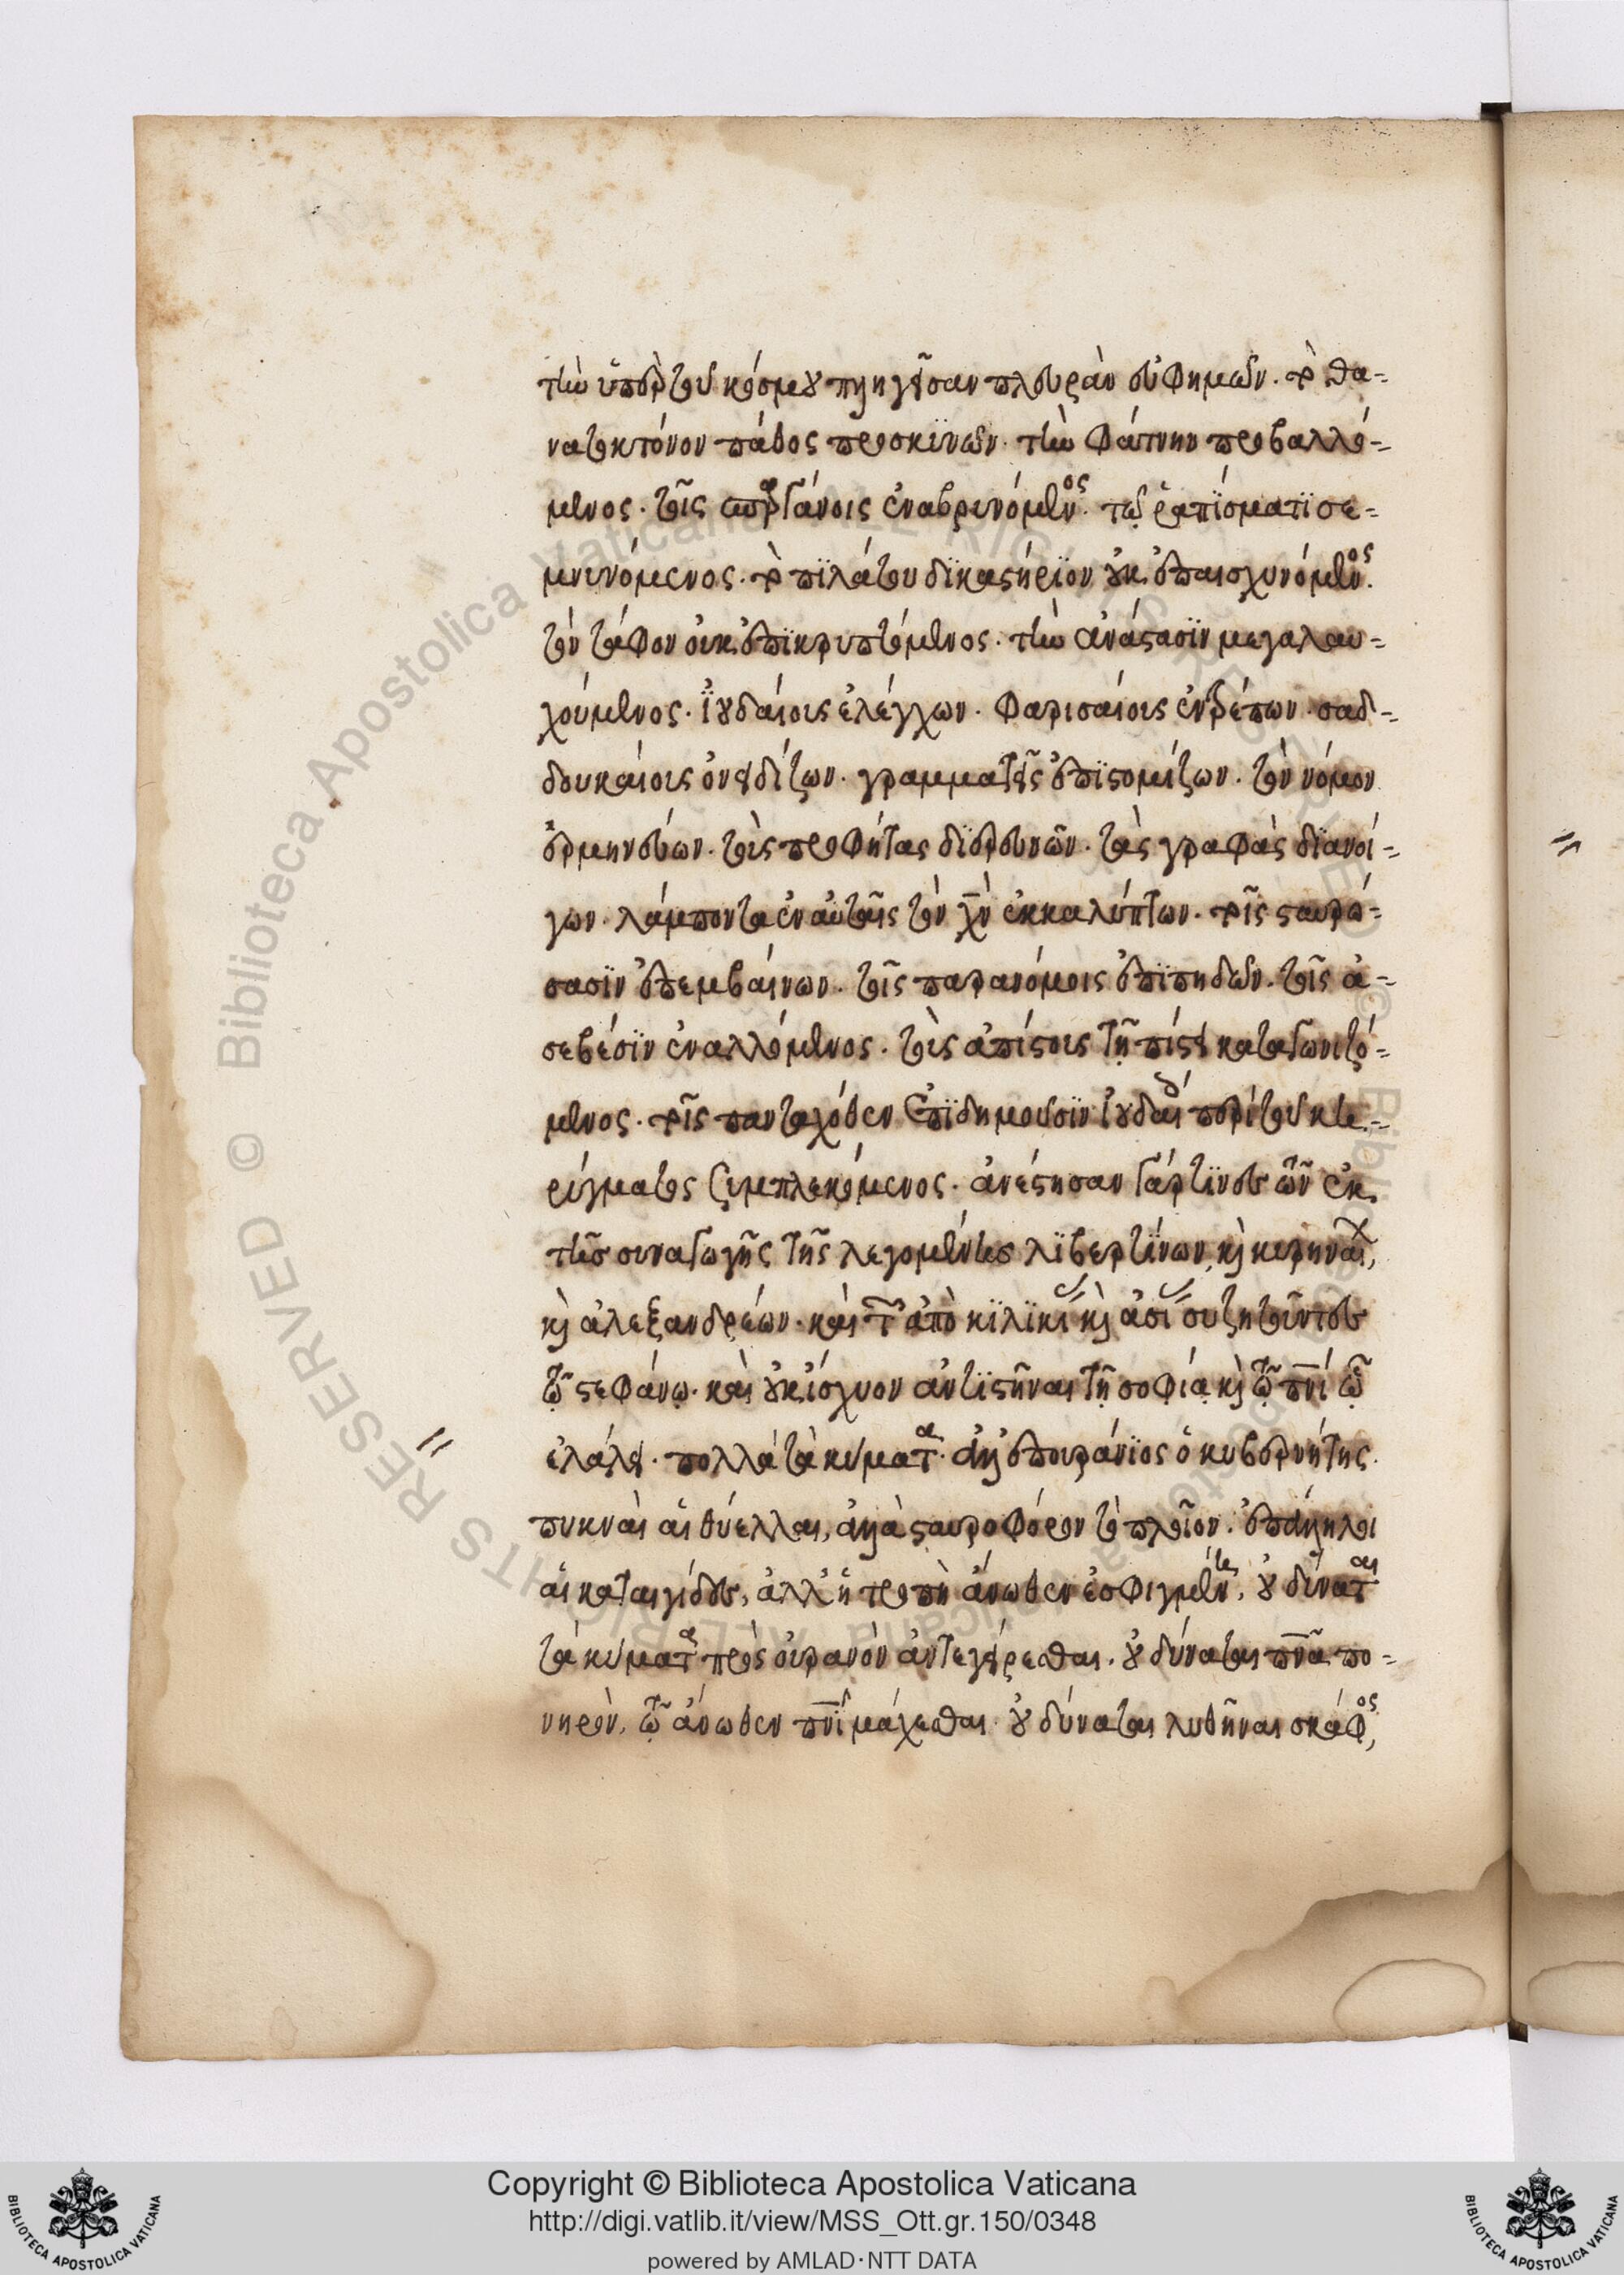 τὴν ὑπὲρ τοῦ κόσμου πληγεῖσαν πλευρὰν εὐφημῶν. τὸ θα-
νατοκτόνον πάθος προσκυνῶν. τὴν φάτνην προβαλλό-
μενος. τοῖς σπαργάνοις ἐναβρυνόμενος. τῷ ῥαπίσματι σε-
μνυνόμενος. τὸ πιλάτου δικαστήριον οὐκ ἐπαισχυνόμενος.
τὸν τάφον οὐκ ἐπικρυπτόμενος. τὴν ἀνάστασιν μεγαλαυ-
χούμενος. ἰουδαίοις ἐλέγχων. φαρισαίοις ἐντρέπων. σαδ-
δουκαίοις ὀνειδίζων. γραμματεῖς ἐπιστομίζων. τὸν νόμον
ἑρμηνεύων. τοὺς προφήτας διερευνῶν. τὰς γραφὰς διανοί-
γων. λάμποντα ἐν αὐταῖς τὸν χν ἐκκαλύπτων. τοῖς σταυρώ-
σασιν ἐπεμβαίνων. τοῖς παρανόμοις ἐπιπηδῶν. τοῖς ἀ-
σεβέσιν ἐναλλόμενος. τοὺς ἀπίστοις τῇ πίστει καταγωνιζό-
μενος. τοῖς πανταχόθεν ἐπιδημοῦσιν ἰουδαί περὶ τοῦ κη-
ρύγματος συμπλεκόμενος. ἀνέστησαν γάρ τινες τῶν ἐκ
τῆς συναγωγῆς τῆς λεγομένης λιβερτίνων, κὶ κυρηναί,
κὶ ἀλεξανδρέων. καὶ τῶν ἀπὸ κιλικίας κὶ ἀσίας συζητοῦντες
τῷ στεφάνῳ. καὶ οὐκ ἴσχυον ἀντιστῆναι τῇ σοφίᾳ κὶ τῷ πνι ᾧ
ἐλάλει. πολλὰ τὰ κύματα. ἀλλ' ἐπουράνιος ὁ κυβερνήτης.
πυκναὶ αἱ θύελλαι, ἀλλὰ σταυροφόρον τὸ πλοῖον. ἐπάλληλοι
αἱ καταιγίδες, ἀλλ' ἡ τροπὴ ἄνωθεν ἐσφιγμένη, οὐ δύναται
τὰ κύματα πρὸς οὐρανὸν ἀντεγείρεσθαι. οὐ δύναται πνα πο-
νηρὸν, τῷ ἄνωθεν πνι μάχεσθαι. οὐ δύναται λυθῆναι σκάφος,
Copyright © Biblioteca Apostolica Vaticana
http://digi.vatlib.it/view/MSS_Ott.gr.150/0348
powered by AMLAD·NTT DATA